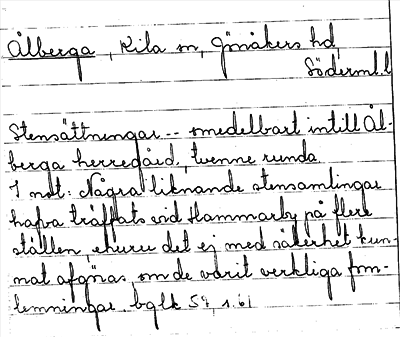 Ålberga, Kila sn, Jönåkers hd,
Söderml.l
Stensättningar -- omedelbart intill Ål-
berga herregård, tvenne runda.
I not: Några liknande stensamlingar
hafva träffats vid Hammarby på flere
ställen, ehuru det ej med säkerhet kun-
nat afgöras, om de varit verkliga forn-
lemningar. bglk 54, s. 61